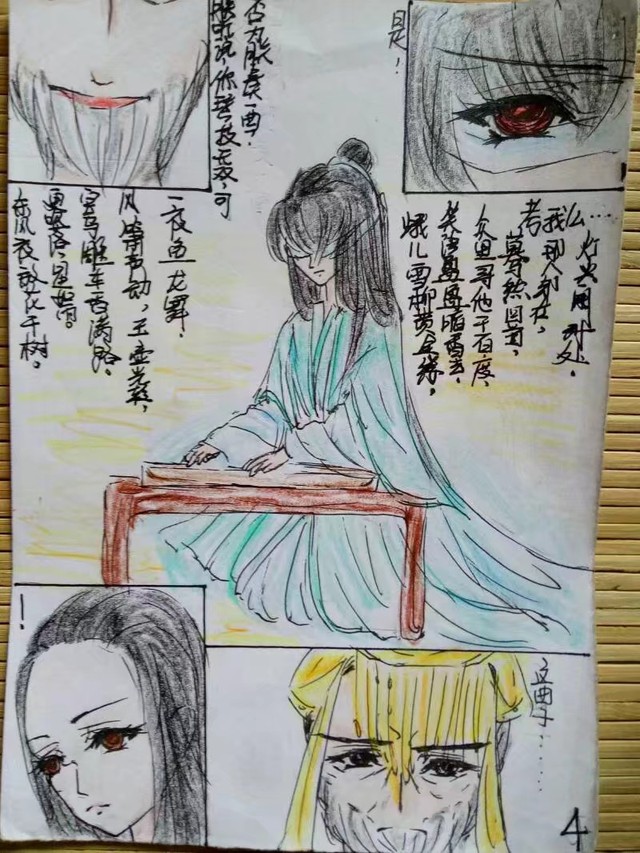 朕听说你琴技无双,可
否为朕奏一曲.
是!
东风夜放花千树。
更吹落,星如雨。
宝马雕车香满路。
风箫声动,玉壶光转,
一夜鱼龙舞.
蛾儿雪柳黄金缕,
笑语盈盈暗香去.
众里寻他千百度,
蓦然回首,
那人却在,
灯火阑珊处.
!
这曲子……
4